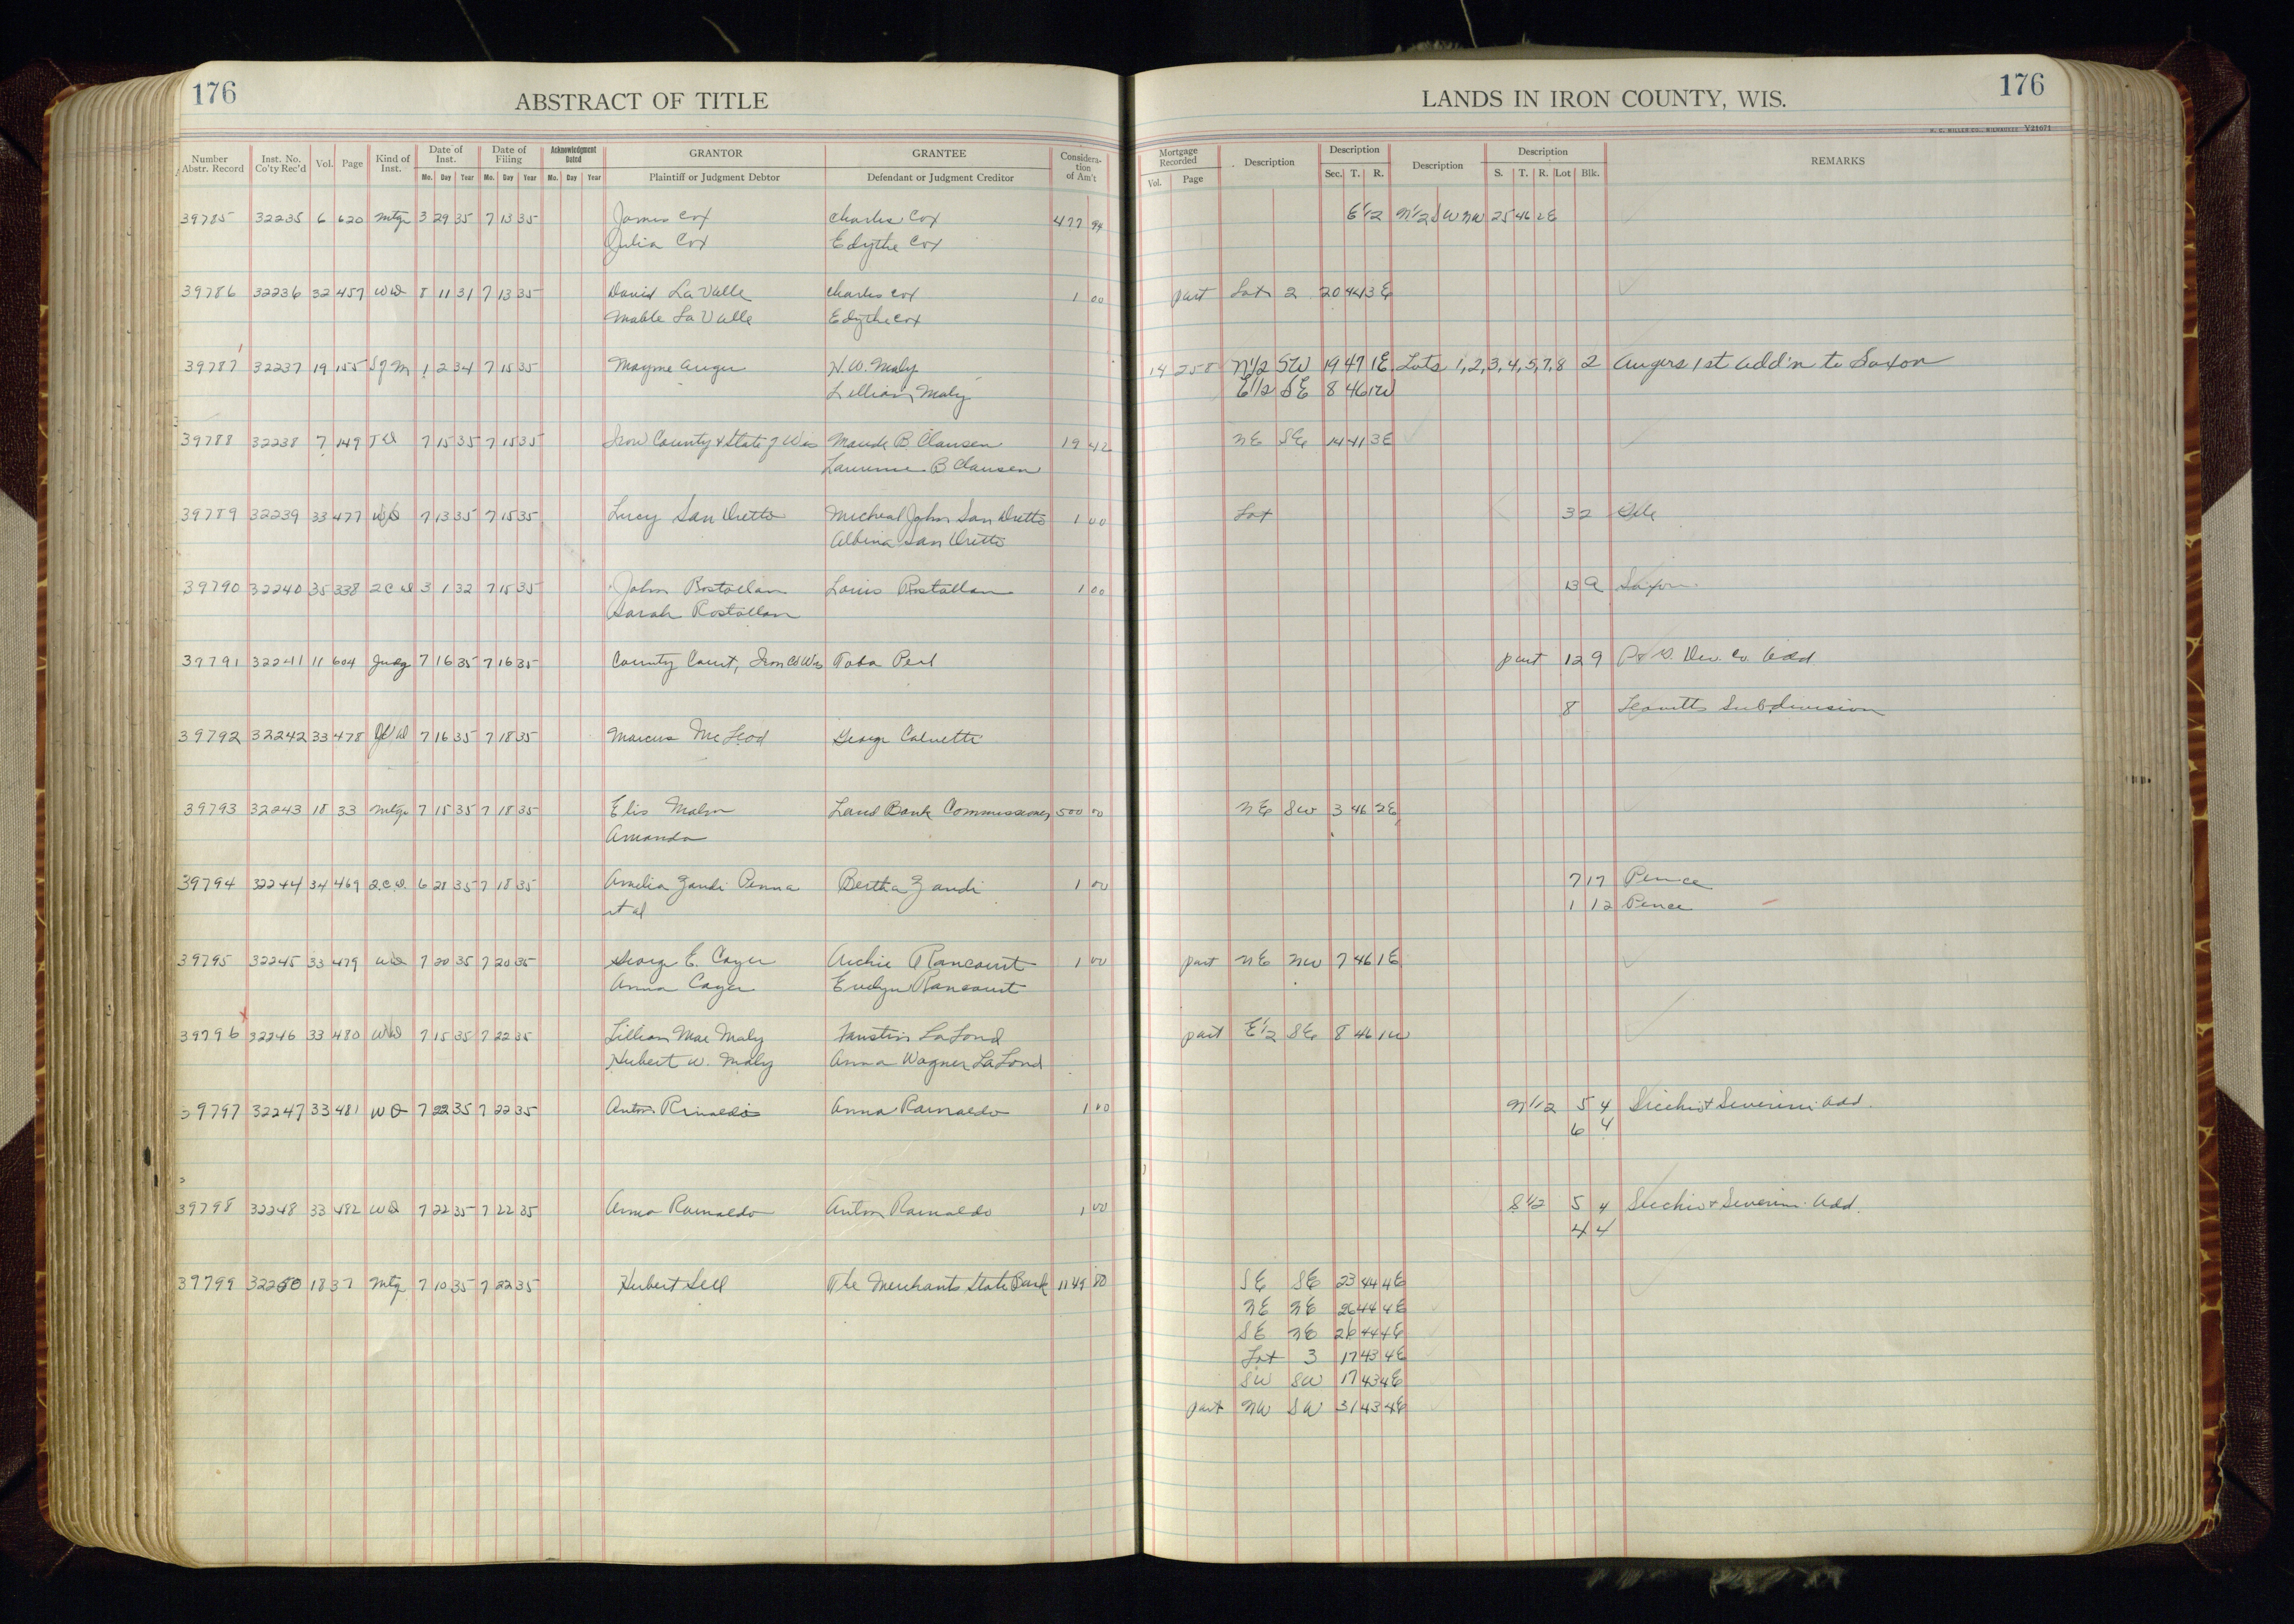 176
ABSTRACT OF TITLE
LANDS IN IRON COUNTY, WIS.
176
Y21671
Number Abstr. Record Inst. No. Co'ty Rec'd Vol. Page Kind of Inst. Date of Inst. Date of Filing Acknowledgment Dated GRANTOR GRANTEE Consideration of Am't Mortgage Recorded Description Description Description Description REMARKS
Mo. Day Year Mo. Day Year Mo. Day Year Plaintiff or Judgment Debtor Defendant or Judgment Creditor Vol. Page Sec. T. R. S. T. R. Lot Blk.
39785 32235 6 620 mtg 3 29 35 7 13 35 James Cox Charles Cox 477 94 E 1/2 N 1/2 SW NW 25 46 2E
Julia Cox Edythe Cox
39786 32236 32 457 WD 8 11 31 7 13 35 David La Valle Charles Cox 1 00 part Lot 2 20 44 3E
Mable La Valle Edythe Cox
39787 32237 19 155 S of M 1 2 34 7 15 35 Mayme Auger H. W. Maly 14 258 N 1/2 SW 19 47 1E Lots 1,2,3,4,5,7,8 2 Augers 1st Add'n to Saxon
Lillian Maly E 1/2 SE 8 46 1W
39788 32238 7 149 TD 7 15 35 7 15 35 Iron County & State of Wis Maude B. Clausen 19 42 NE SE 14 41 3E
Laurence B Clausen
39789 32239 33 477 WD 7 13 35 7 15 35 Lucy San Dretto Micheal John San Dretto 1 00 Lot 32 Gile
Albina San Dretto
39790 32240 35 338 2CD 3 1 32 7 15 35 John Rostollan Louis Rostollan 1 00 13 9 Saxon
Sarah Rostollan
39791 32241 11 604 Judg 7 16 35 7 16 35 County Court, Iron Co Wis part 12 9 Dev. Co. Add
8 Leavitts Subdivision
39792 32242 33 478 WD 7 16 35 7 18 35 Marcus McLeod George Calvetti
39793 32243 18 33 mtg 7 15 35 7 18 35 Elis Malm Land Bank Commissioner 500 00 NE SW 3 46 2E
Amanda
39794 32244 34 469 2.C.D. 6 28 35 7 18 35 Amelia Zandi Penna Bertha Zandi 1 00 7 17 Pence
et al 1 12 Pence
39795 32245 33 479 WD 7 20 35 7 20 35 George E. Cayer Archie Rancourt 1 00 part NE NW 7 46 1E
Anna Cayer Evelyn Rancourt
39796 32246 33 480 WD 7 15 35 7 22 35 Lillian Mae Maly Faustin LaLond part E 1/2 SE 8 46 1W
Hubert W. Maly Anna Wagner LaLond
39797 32247 33 481 WD 7 22 35 7 22 35 Anton Rinaldo Anna Rainaldo 1 00 N 1/2 5 4 & Severini Add.
6 4
39798 32248 33 482 WD 7 22 35 7 22 35 Anna Rainaldo Anton Rainaldo 1 00 S 1/2 5 4 & Severini Add.
4 4
39799 32250 18 37 mtg 7 10 35 7 22 35 Hubert Sell The Merchants State Bank 1149 80 SE SE 23 44 4E
NE NE 26 44 4E
SE NE 26 44 4E
Lot 3 17 43 4E
SW SW 17 43 4E
part NW SW 31 43 4E